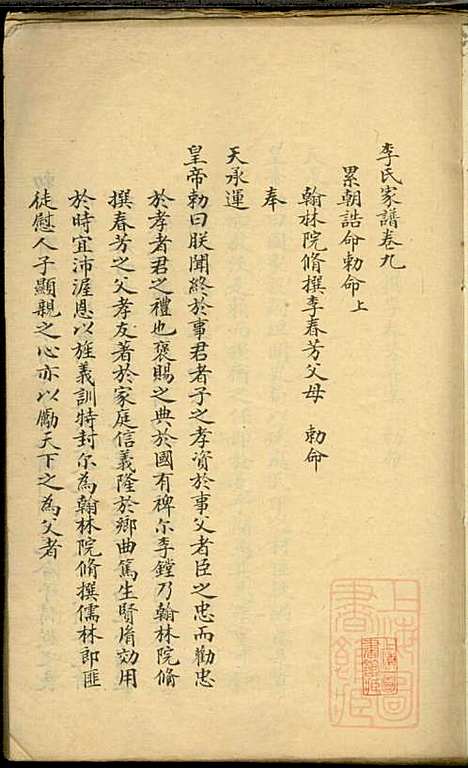 李氏家譜卷九
累朝誥命勅命上
翰林院脩撰李春芳父母 勅命
奉
天承運
皇帝勅曰朕聞終於事君者子之孝資於事父者臣之忠而勸忠
於孝者君之禮也褒賜之典於國有稗尔李鏜乃翰林院脩
撰春芳之父孝友著於家庭信義隆於鄉曲篤生賢胤効用
於時宜沛渥恩以旌義訓特封尔為翰林院脩撰儒林郎匪
徒慰人子顯親之心亦以勵天下之為父者
上海圖
書館藏